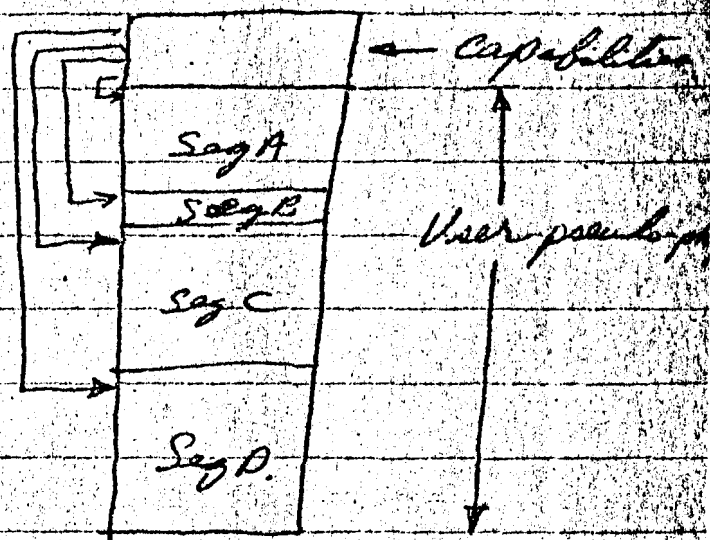 Capabilities
Seg A
Seg B
User pseudo
Seg C
Seg D.